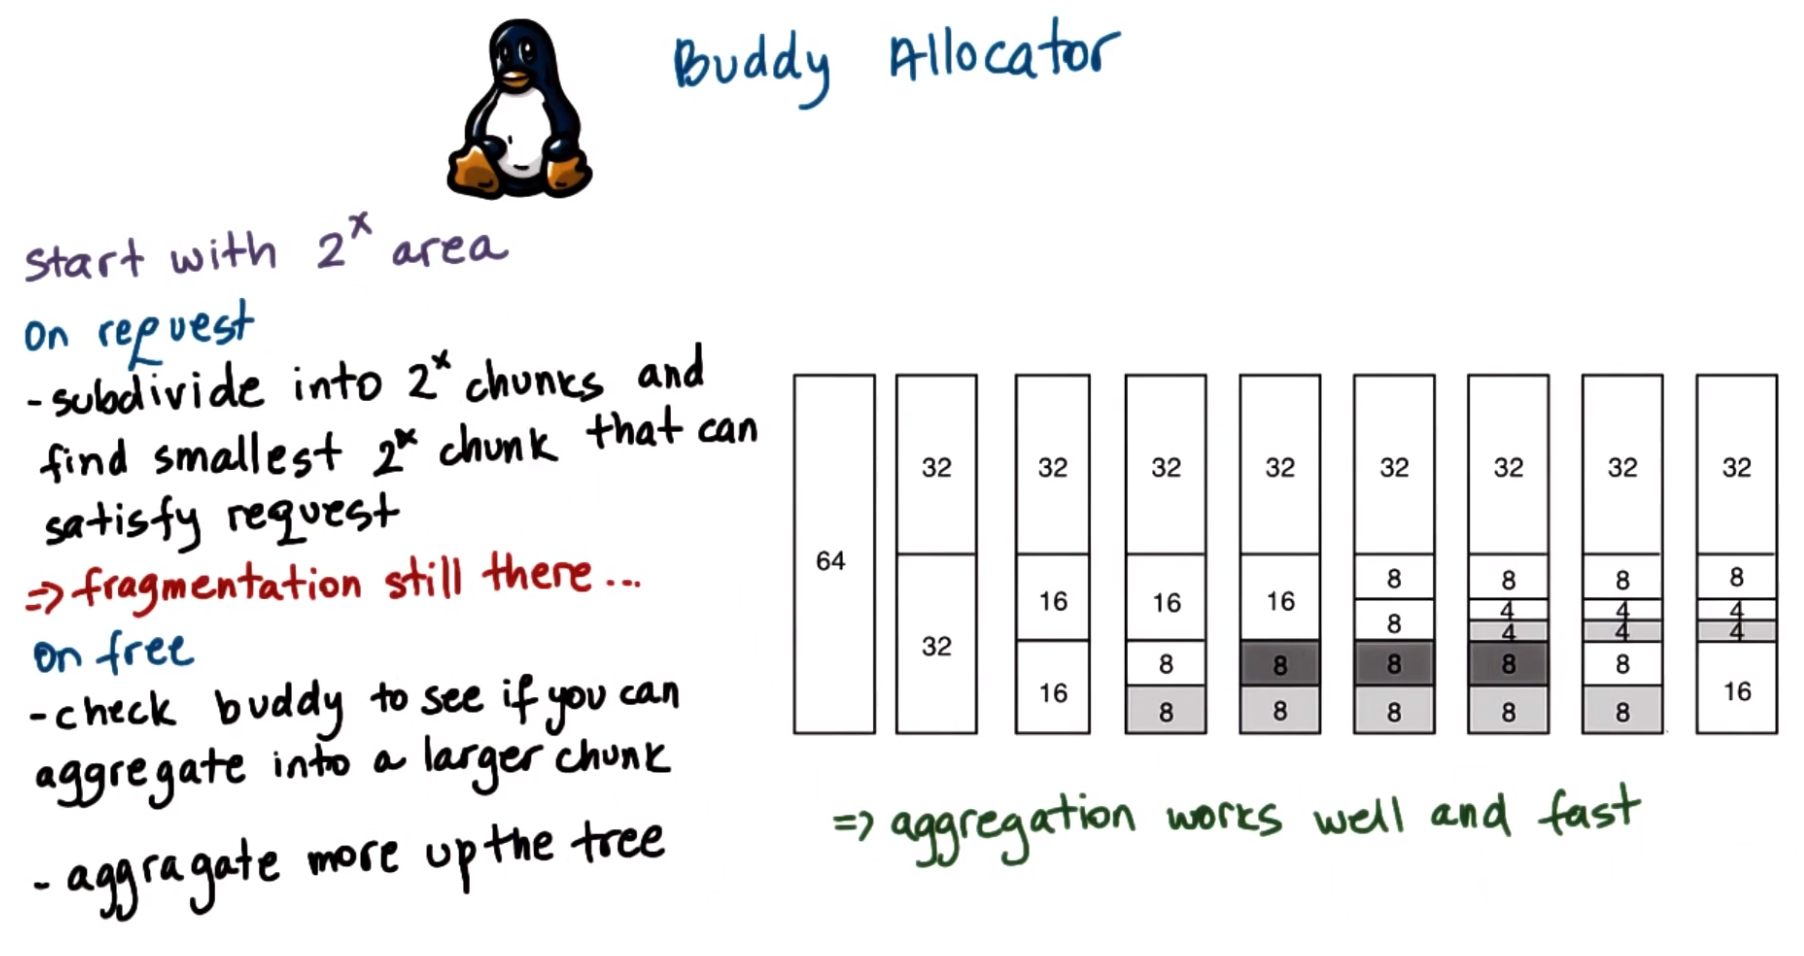 Buddy Allocator
start with 2^x area
on request
- subdivide into 2^x chunks and
find smallest 2^x chunk that can
satisfy request
=> fragmentation still there...
on free
- check buddy to see if you can
aggregate into a larger chunk
- aggragate more up the tree
64
32
32
32
16
16
32
16
8
8
32
16
8
8
32
8
8
8
8
32
8
4
4
8
8
32
8
4
4
8
8
32
8
4
4
16
=> aggregation works well and fast